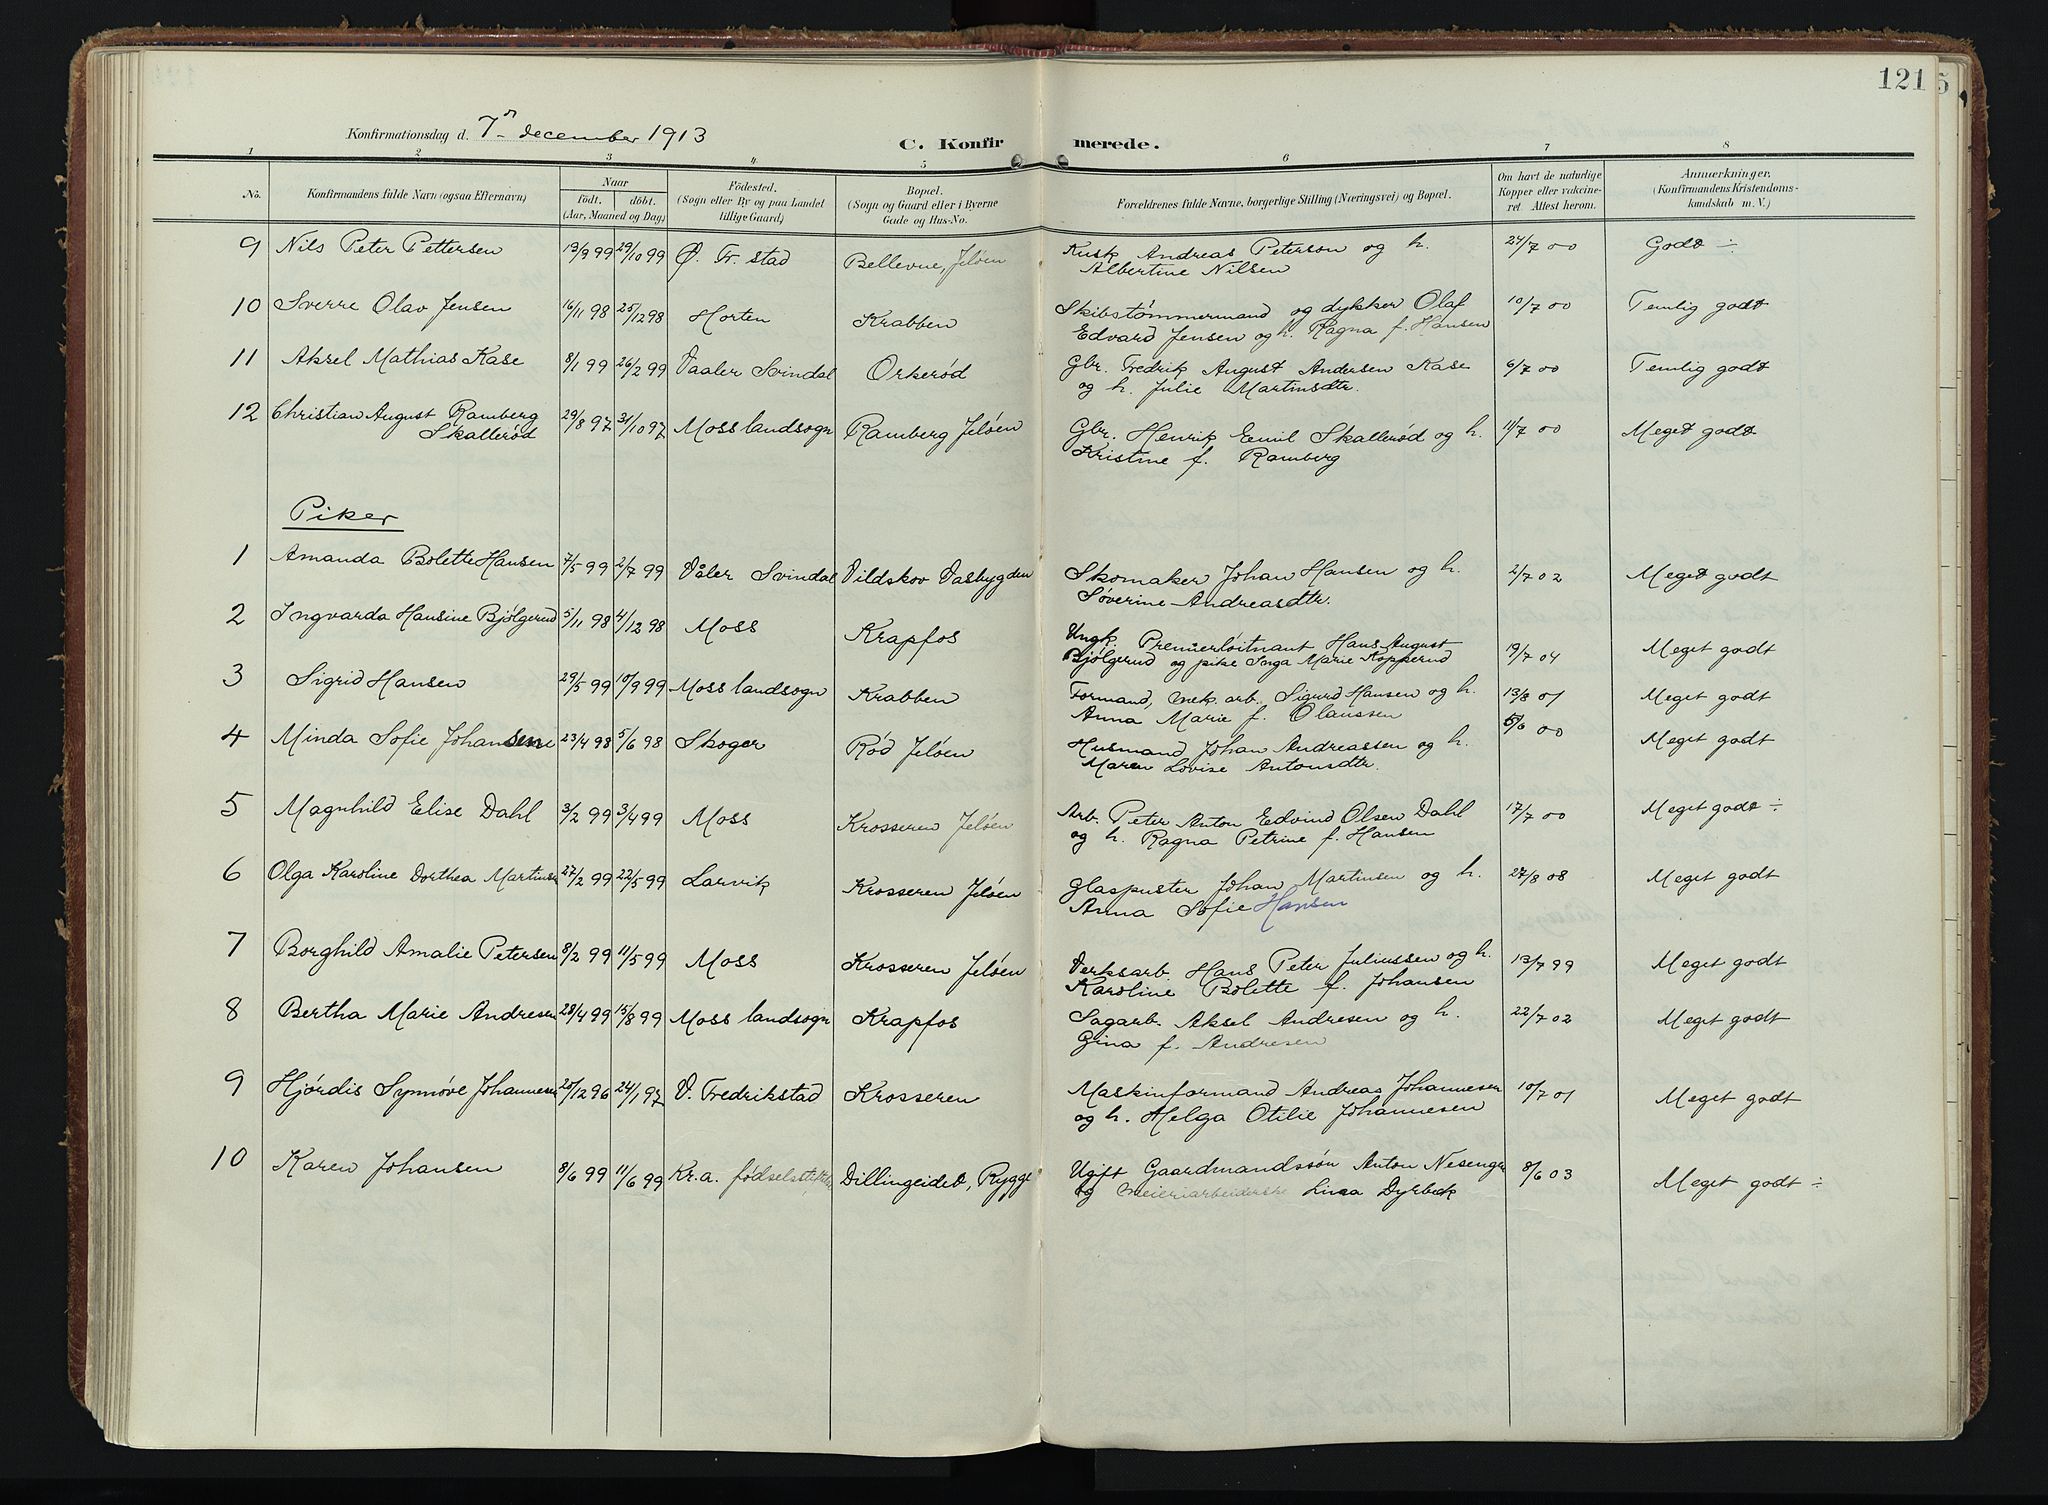 121
Konfirmationsdag d. 7de december 1913
C. Konfirmerede.
1 2 3 4 5 6 7 8
No. Konfirmandens fulde Navn (ogsaa Efternavn) Naar født. døbt. (Aar, Maaned og Dag) Fødested. (Sogn eller By og paa Landet tillige Gaard) Bopæl. (Sogn og Gaard eller i Byerne Gade og Hus-No. Forældrenes fulde Navne, borgerlige Stilling (Næringsvei) og Bopæl. Om havt de naturlige Kopper eller vakcineret. Attest herom. Anmærkninger. (Konfirmandens Kristendomskundskab m. V.)
9 Nils Peter Pettersen 13/9 99 29/10 99 Ø. Fr. stad Bellevue, Jeløen Kusk Andreas Peterson og h. 24/7 00 Godt ÷
Albertine Nilsen
10 Sverre Olav Jensen 16/11 98 25/12 98 Horten Krabben Skibstømmermand og dykker Olaf 10/7 00 Temlig godt
Edvard Jensen og h. Ragna f. Hansen
11 Aksel Mathias Kase 8/1 99 26/2 99 Vaaler Svindal Orkerød Gbr. Fredrik August Andersen Kase 6/7 00 Temlig godt
og h. Julie Martinsdtr.
12 Christian August Ramberg 29/8 97 31/10 97 Moss landsogn Ramberg Jeløen Gbr. Henrik Emil Skallerød og h. 11/7 00 Meget godt
Skallerød Kristine f. Ramberg
Piker
1 Amanda Bolette Hansen 7/5 99 2/7 99 Våler Svindal Vildskov Vasbygden Skomaker Johan Hansen og h. 2/7 02 Meget godt
Søverine Andreasdtr.
2 Ingvarda Hansine Bjølgerud 5/11 98 4/12 98 Moss Krapfos Ungk. Premierløitnant Hans August 19/7 04 Meget godt
Bjølgerud og pike Inga Marie Kopperud
3 Sigrid Hansen 29/5 99 10/9 99 Moss landsogn Krabben Formand, mek. arb. Sigurd Hansen og h. 13/8 01 Meget godt
Anna Marie f. Olaussen
4 Minda Sofie Johansen 23/4 98 5/6 98 Skoger Rød Jeløen Husmand Johan Andreassen og h. 5/6 00 Meget godt
Maren Lovise Antonsdtr.
5 Magnhild Elise Dahl 3/2 99 3/4 99 Moss Krosseren Jeløen Arb. Peter Anton Edvind Olsen Dahl 17/7 00 Meget godt ÷
og h. Ragna Petrine f. Hansen
6 Olga Karoline Dorthea Martinsen 27/2 99 22/5 99 Larvik Krosseren Jeløen Glaspuster Johan Martinsen og h. 27/8 08 Meget godt
Anna Sofie Hansen
7 Borghild Amalie Petersen 8/2 99 11/5 99 Moss Krosseren Jeløen Verksarb. Hans Peter Juliussen og h. 13/7 99 Meget godt
Karoline Bolette f. Johansen
8 Bertha Marie Andresen 28/4 99 15/8 99 Moss landsogn Krapfos Sagarb. Aksel Andresen og h. 22/7 02 Meget godt
Gina f. Andresen
9 Hjørdis Synnøve Johannesen 20/12 96 24/1 97 V. Fredrikstad Krosseren Maskinformand Andreas Johannesen 10/7 01 Meget godt
og h. Helga Otilie Johannesen
10 Karen Johansen 8/6 99 11/6 99 Kr.a. Dillingeidet, Rygge Ugift Gaardmandssøn Anton 8/6 03 Meget godt ÷
og meieriarbeiderske Dyrbek